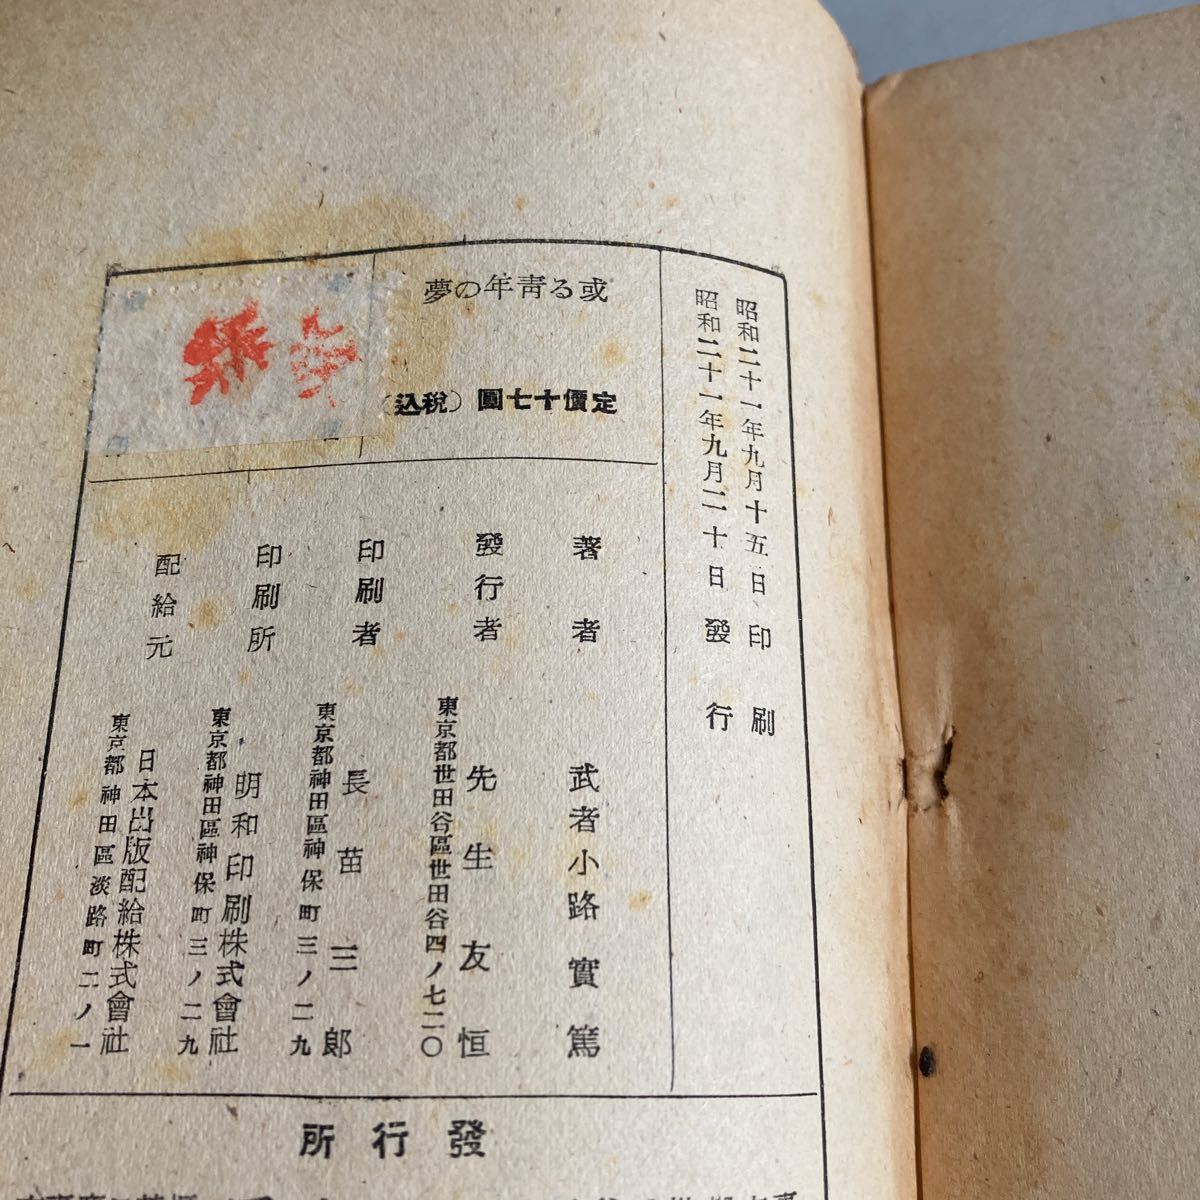 昭和二十一年九月十五日印刷
昭和二十一年九月二十日發行
或る靑年の夢
定價十七圓（税込）
著者 武者小路實篤
發行者 先生友恒
東京都世田谷區世田谷四ノ七二〇
印刷者 長苗三郎
東京都神田區神保町三ノ二九
印刷所 明和印刷株式會社
東京都神田區神保町三ノ二九
配給元 日本出版配給株式會社
東京都神田區淡路町二ノ一
發行所